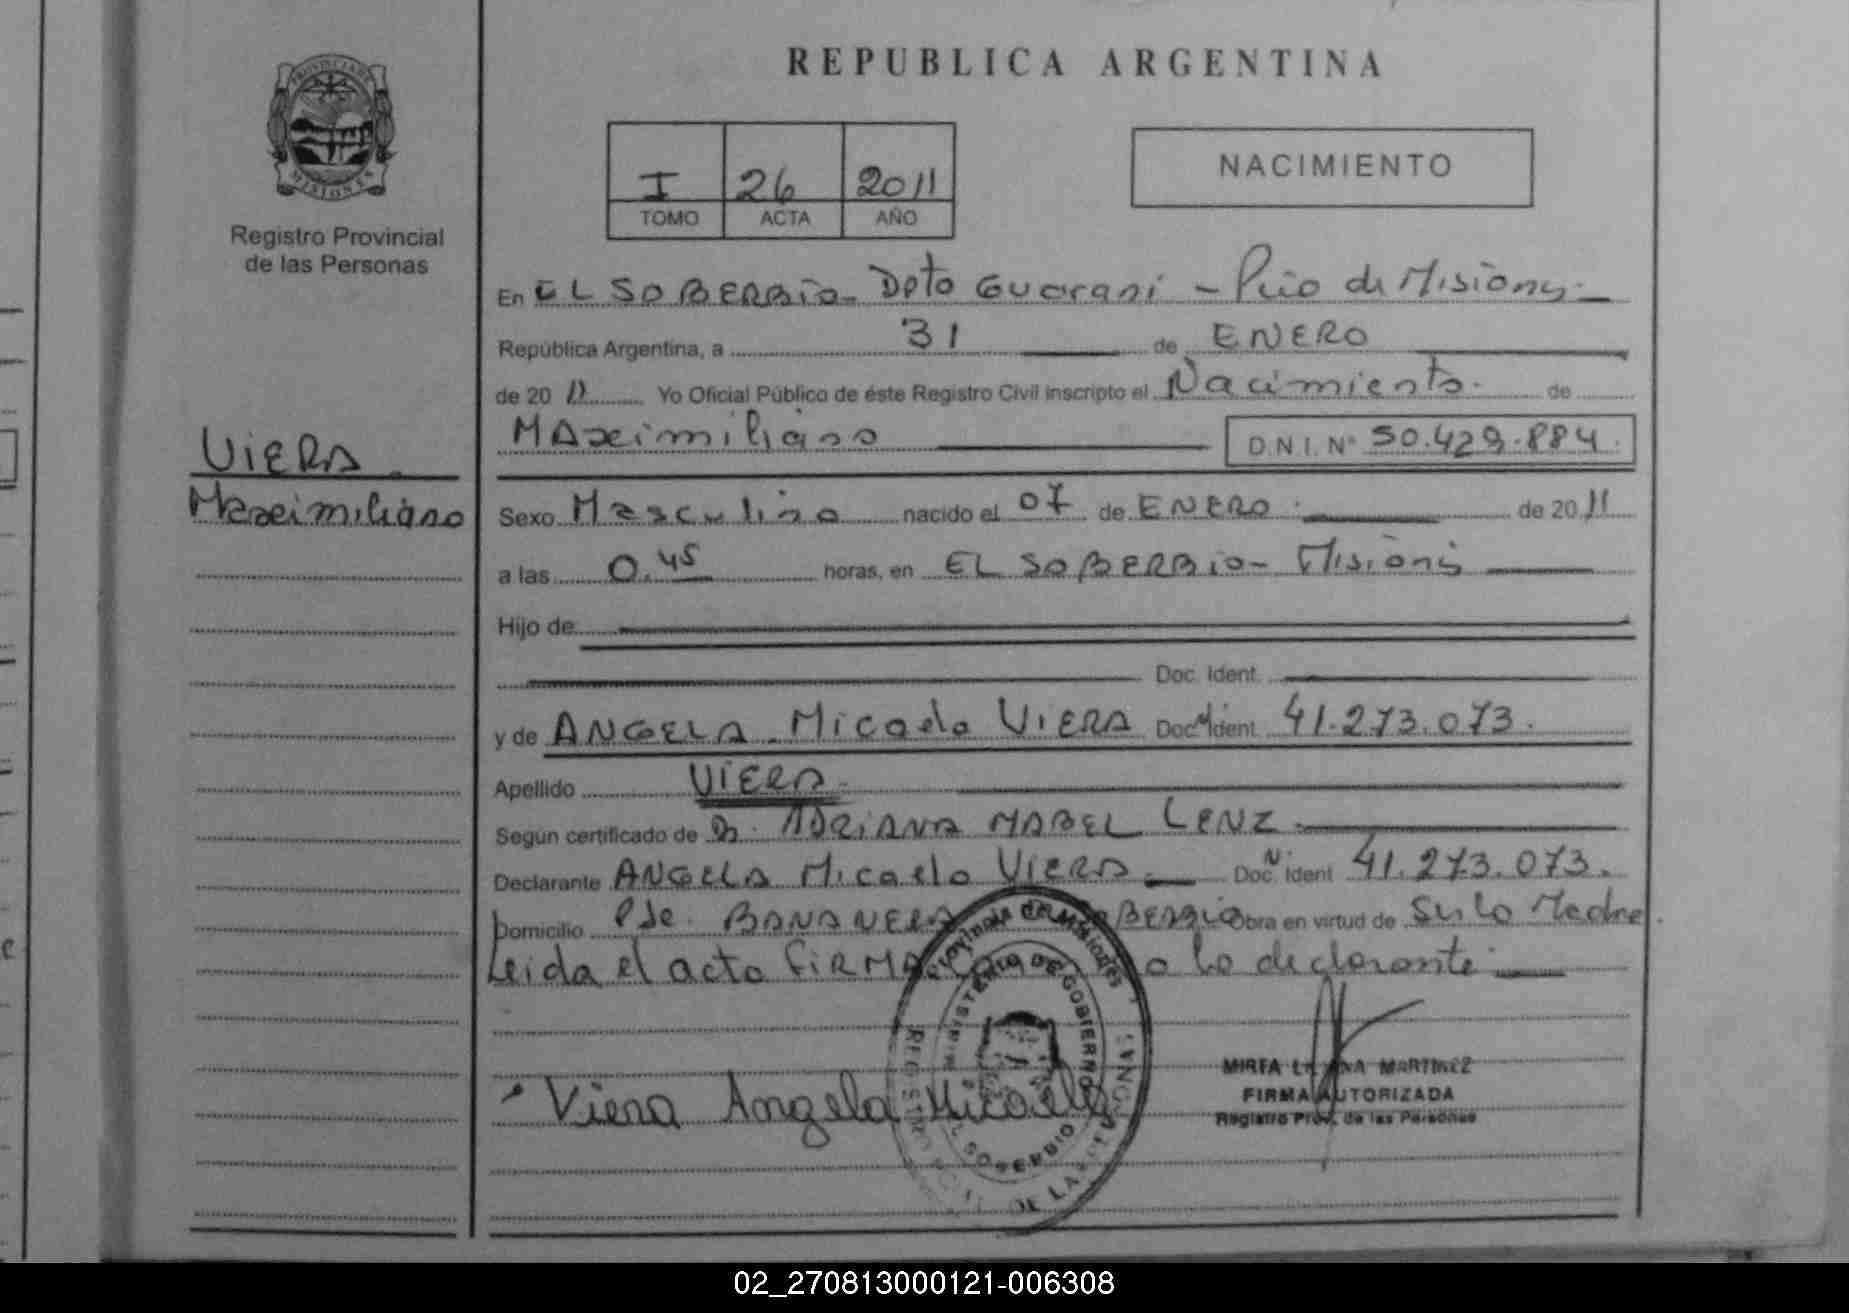 REPUBLICA ARGENTINA
PROVINCIA DE MISIONES
Registro Provincial
de las Personas
I 26 2011
TOMO ACTA AÑO
NACIMIENTO
VIERA
Maximiliano
En EL SOBERBio - Dpto Guarani - Pcio de Misiones -
República Argentina, a 31 de ENERO
de 20 11 Yo Oficial Público de éste Registro Civil inscripto el Nacimiento. de
MAximiliano D.N.I. Nº 50.429.884.
Sexo Masculino nacido el 07 de ENERO. de 20 11
a las 0.45 horas, en EL SOBERBio - Misiones
Hijo de
Doc. Ident.
y de ANGELA Micaela VIERA Doc. Ident. 41.273.073.
Apellido VIERA.
Según certificado de Dr. ADRIANA MABEL LENZ.
Declarante ANGELA Micaela VIERA. Doc. N. Ident 41.273.073.
Domicilio Pje. BANANERA SOBERBIO Obra en virtud de Ser la Madre.
Leida el acta FiRMA la declarante
Viera Angela Micaela
PROVINCIA DE MISIONES
MINISTERIO DE GOBIERNO
REGISTRO PROVINCIAL DE LAS PERSONAS
EL SOBERBIO
MIRTA MARTINEZ
FIRMA AUTORIZADA
Registro Prov. de las Personas
02_270813000121-006308